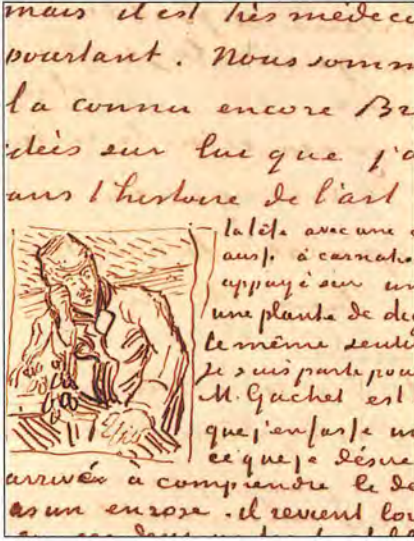 mais il est très médeci
pourtant. Nous somm
l'a connu encore Br
idées sur lui que j'a
ans l'histoire de l'art
la tête avec une
aussi à carnati
appuyé sur un
une plante de di
le même senti
Je suis parti pou
M. Gachet est
que j'en fasse un
ce que je désire
arrivé à comprendre le de
as un en rose. il revient